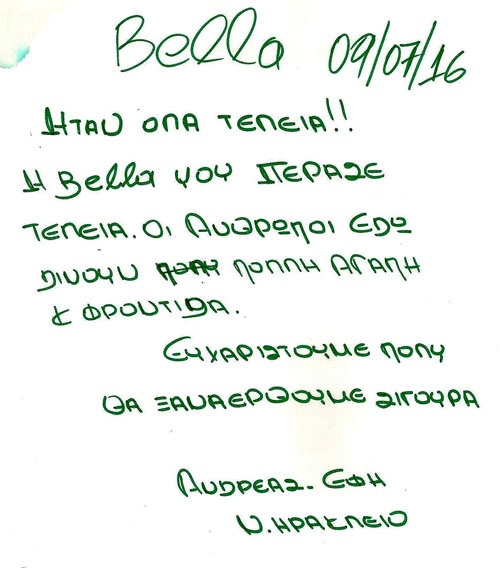 Bella 09/07/16
ΗΤΑΝ ΟΛΑ ΤΕΛΕΙΑ!!
Η Bella ΜΟΥ ΠΕΡΑΣΕ
ΤΕΛΕΙΑ. ΟΙ ΑΝΘΡΩΠΟΙ ΕΔΩ
ΔΙΝΟΥΝ ΠΟΛΛΗ ΑΓΑΠΗ
& ΦΡΟΝΤΙΔΑ.
ΕΥΧΑΡΙΣΤΟΥΜΕ ΠΟΛΥ
ΘΑ ΞΑΝΑΕΡΘΟΥΜΕ ΣΙΓΟΥΡΑ
ΑΝΔΡΕΑΣ - ΕΦΗ
Ν. ΗΡΑΚΛΕΙΟ